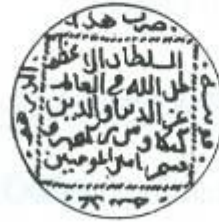 ضرب هذا
الدرهم
السلطان الاعظم
ظل الله في العالم
عز الدنيا والدين
كيكاوس بن كيخسرو
قسيم امير المومنين